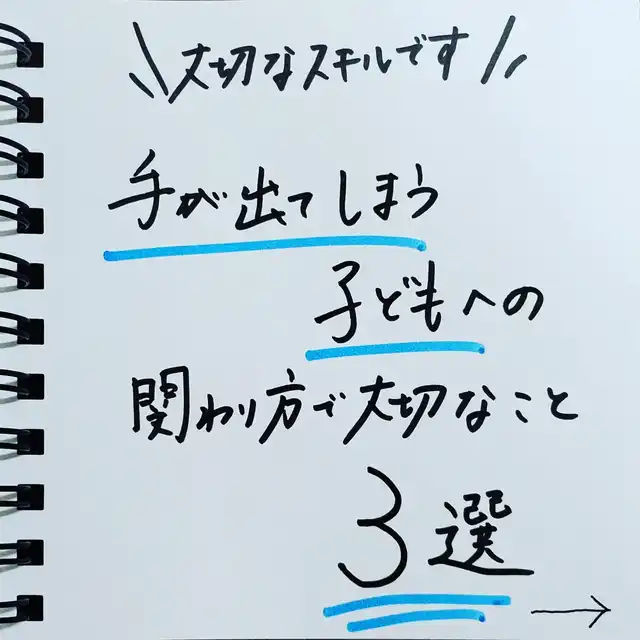 大切なスキルです
手が出てしまう
子どもへの
関わり方で大切なこと
3選